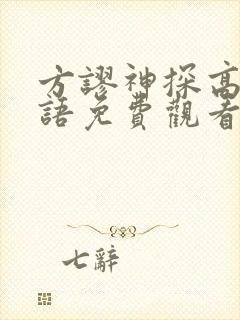 方謬神探高
語免費觀看
七辭